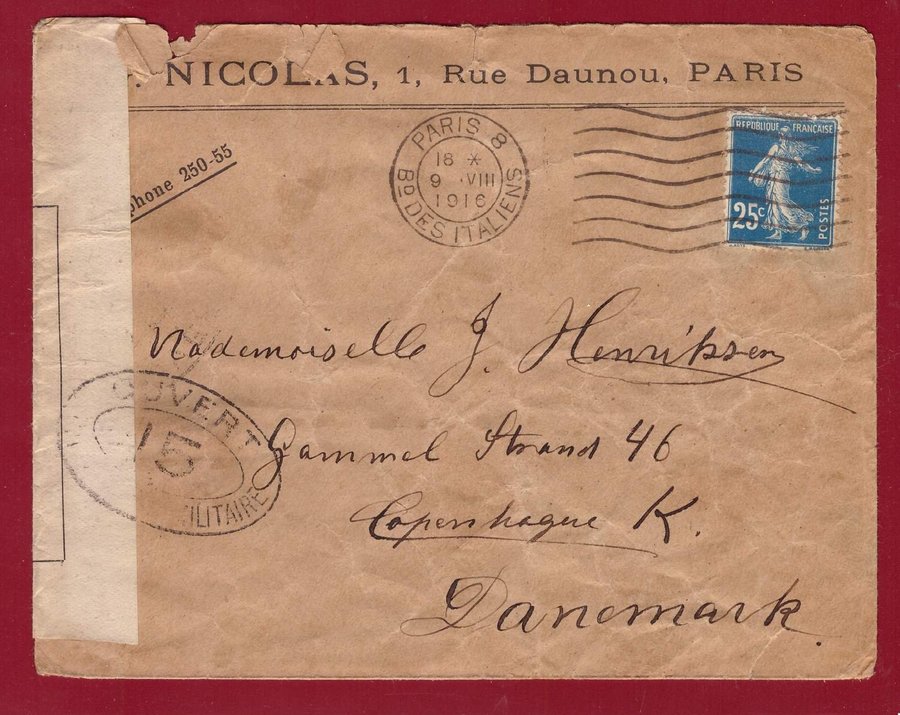 NICOLAS, 1, Rue Daunou, PARIS
phone 250-55
PARIS 8
18 *
9 VIII
1916
Bd DES ITALIENS
REPUBLIQUE FRANÇAISE
25c
POSTES
Mademoiselle J. Henriksen
Gammel Strand 46
Copenhague K.
Danemark.
OUVERT
15
MILITAIRE